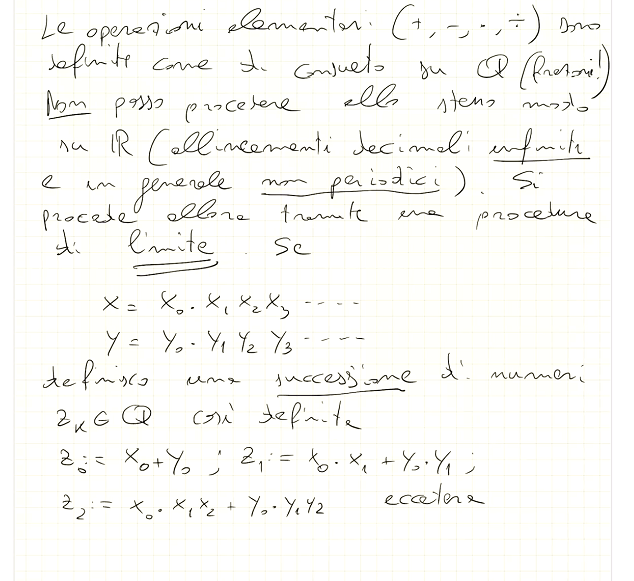 Le operazioni elementari (+, -, ·, ÷) sono
definite come di consueto su ℚ (frazioni!)
Non posso procedere allo stesso modo
su ℝ (allineamenti decimali infiniti
e in generale non periodici). Si
procede allora tramite una procedura
di limite. Se
x = x₀. x₁ x₂ x₃ ----
y = y₀. y₁ y₂ y₃ ----
definisco una successione di numeri
z_k ∈ ℚ così definita
z₀ := x₀ + y₀ ; z₁ := x₀. x₁ + y₀. y₁ ;
z₂ := x₀. x₁ x₂ + y₀. y₁ y₂ eccetera